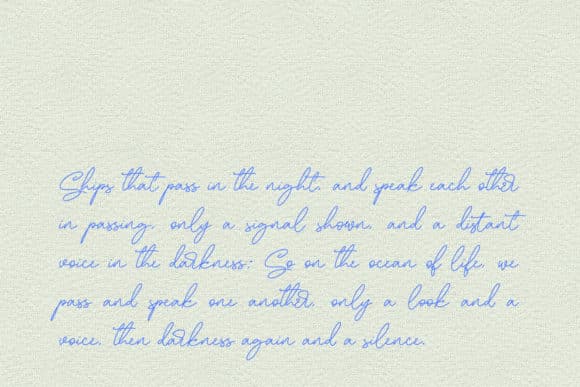 Ships that pass in the night, and speak each other
in passing, only a signal shown, and a distant
voice in the darkness; So on the ocean of life, we
pass and speak one another, only a look and a
voice, then darkness again and a silence.